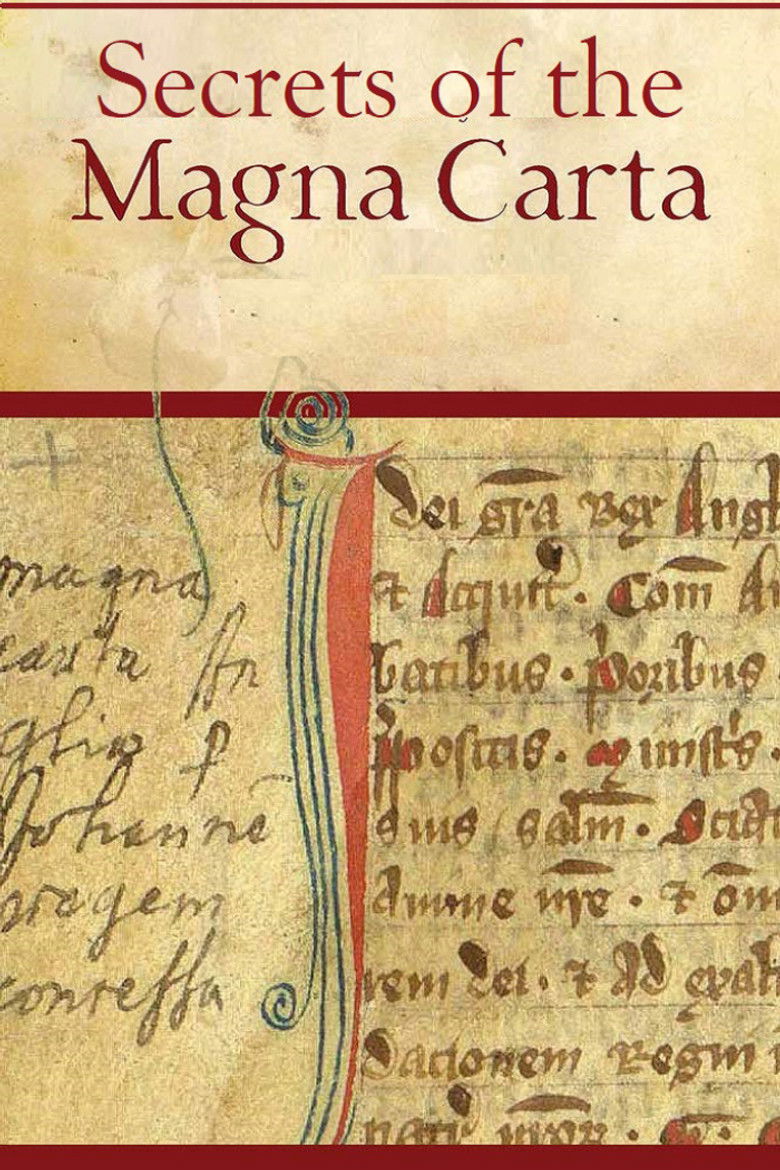 Secrets of the
Magna Carta
magna
carta An
glia p
Johanne
regem
concessa
dei gra Rex Angl
et Acquit. Com
batibus. poribus
positis. minist's.
suis salm. Sciat
anime nre. et om
rem dei. et Ad exalt
dacionem Regni